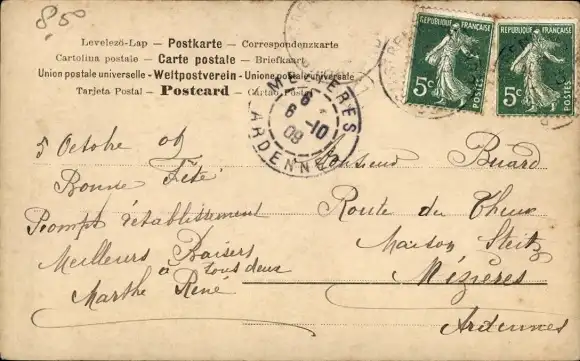 8,50
Levelező-Lap — Postkarte — Correspondenzkarte
Cartolina postale — Carte postale — Briefkaart
Union postale universelle - Weltpostverein - Unione postale universale
Tarjeta Postal — Postcard — Cartão Postal
REPUBLIQUE FRANÇAISE
5c
POSTES
REPUBLIQUE FRANÇAISE
5c
POSTES
MEZIERES
6
6 -10
09
ARDENNES
5 Octobre 09
Bonne Fête
Prompt rétablissement
Meilleurs Baisers
à tous deux
Marthe René
Monsieur Buard
Route du Theux
Maison Steitz
Mézières
Ardennes